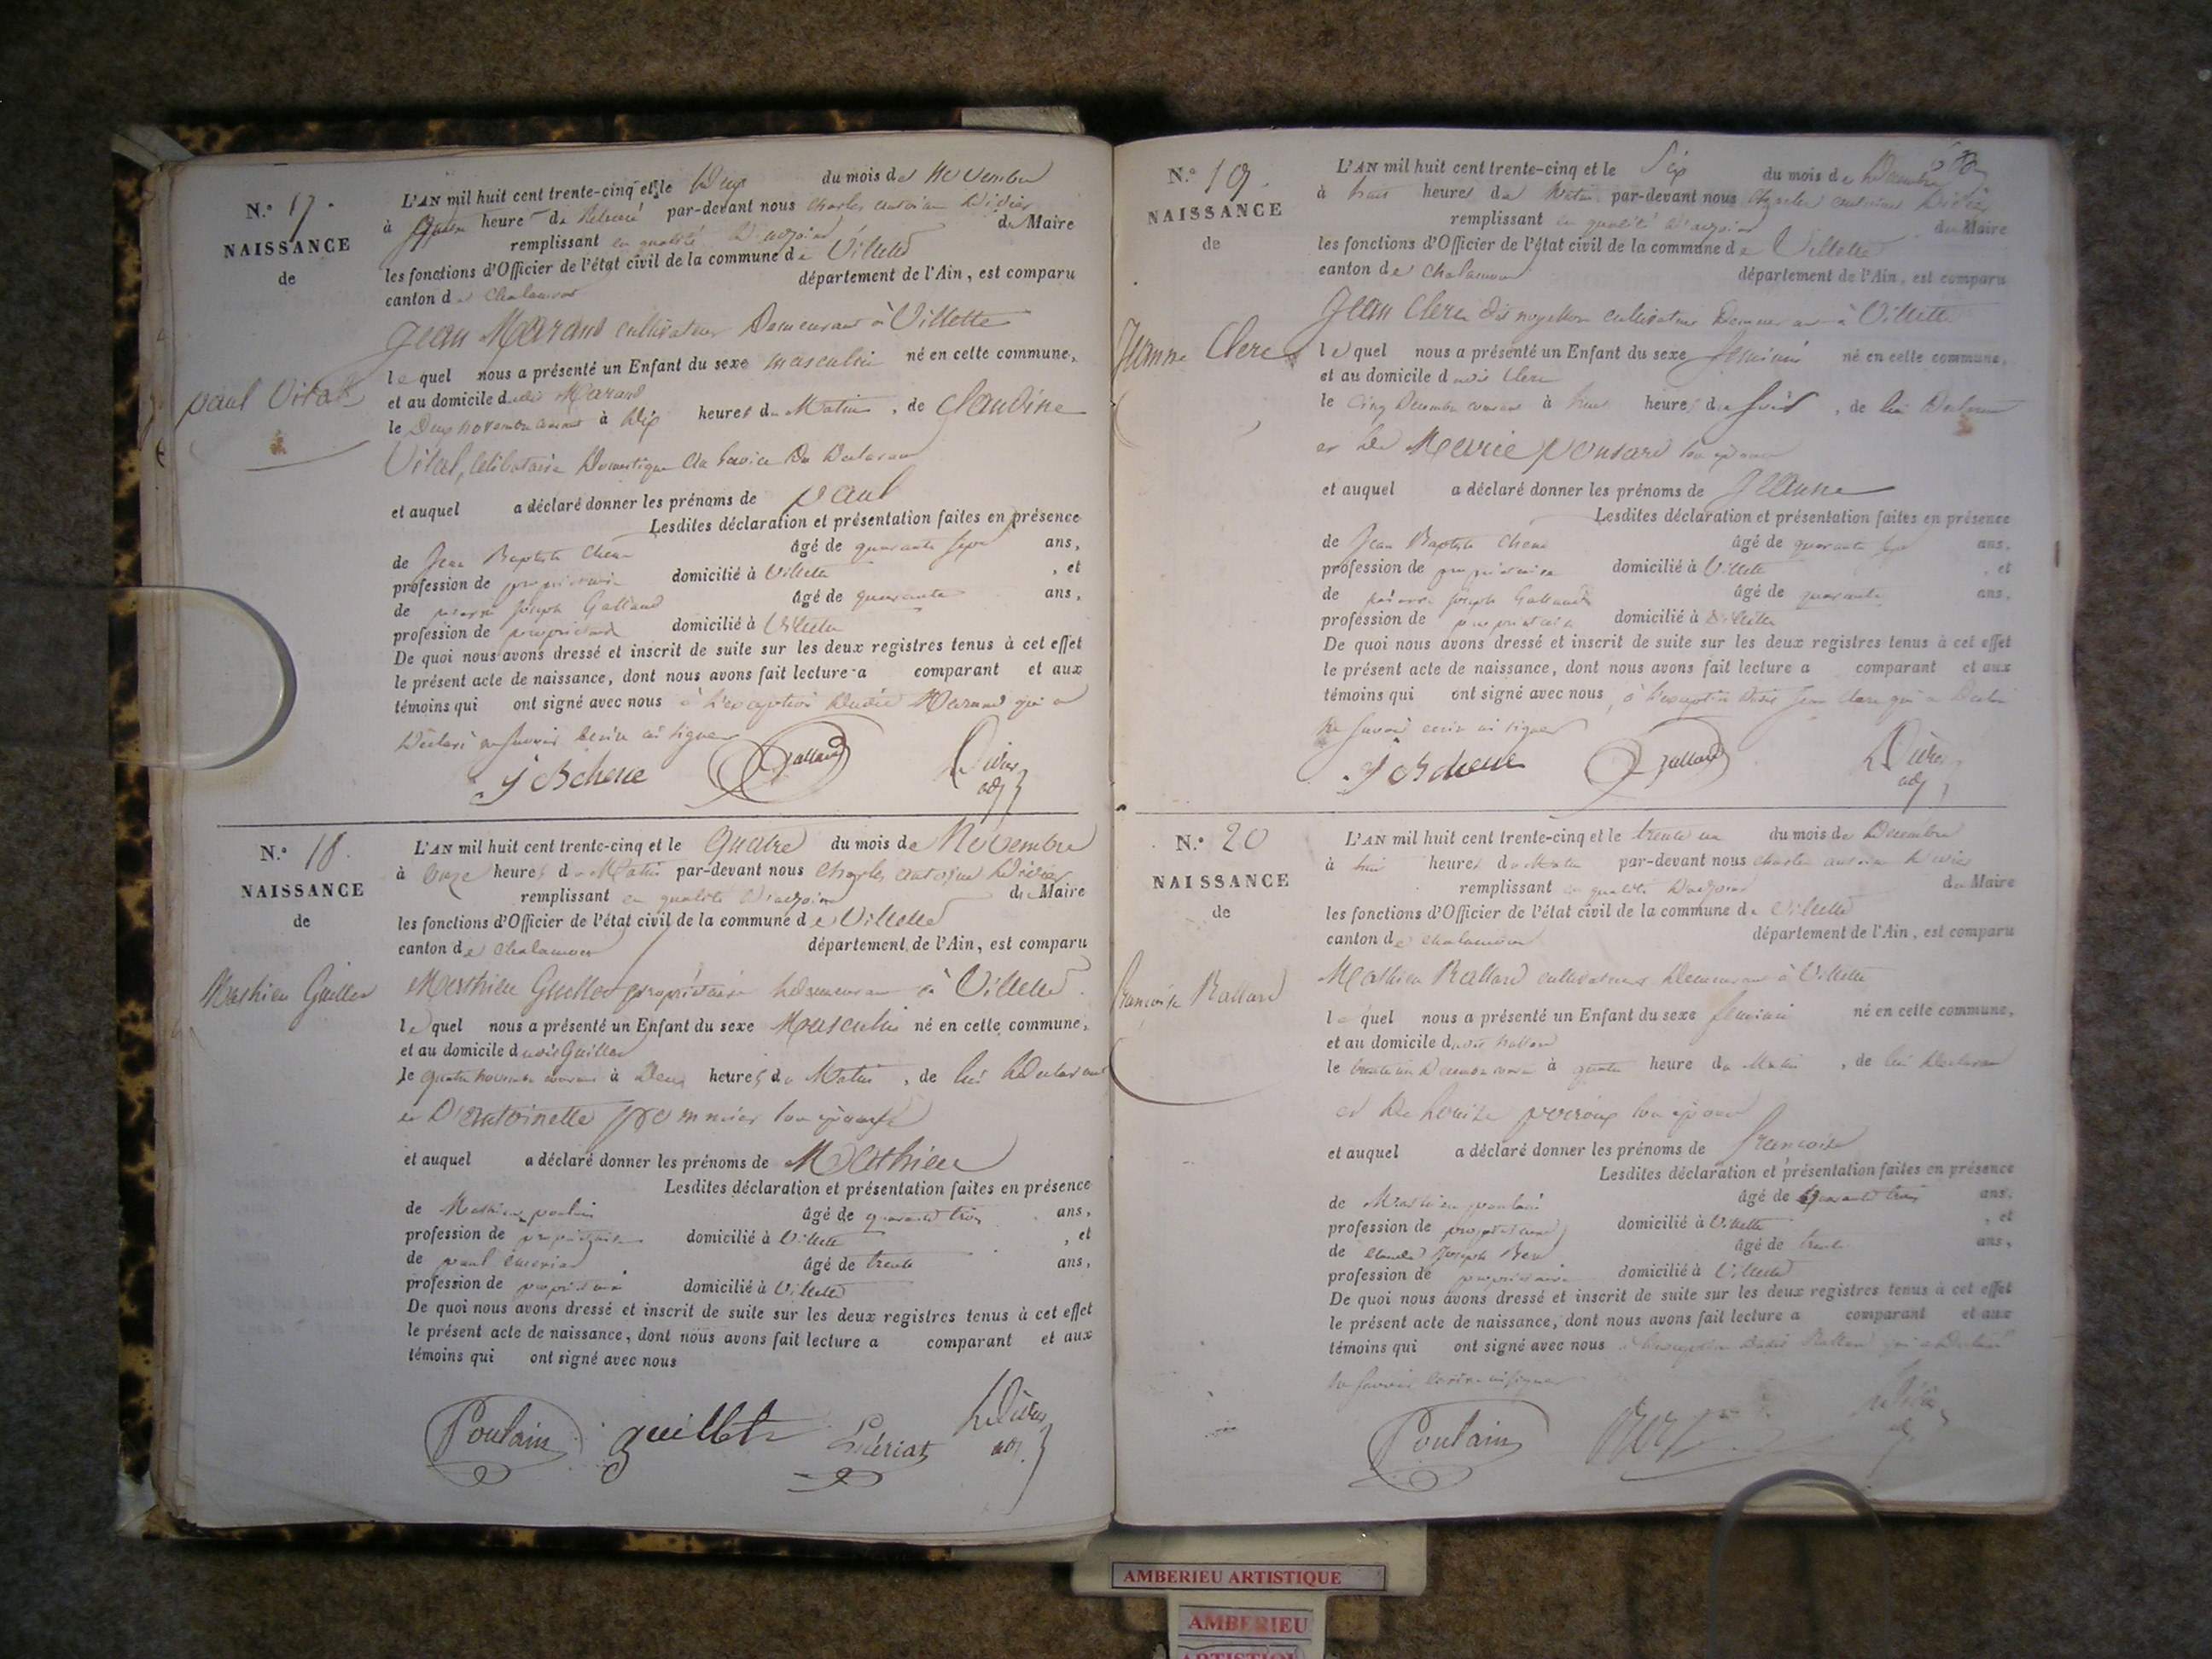 N.° 17.
NAISSANCE
de
paul Vital
L'AN mil huit cent trente-cinq et le Deux du mois de Novembre
à heure de Relevée par-devant nous Charles antoine Didier
remplissant en qualité d'adjoint du Maire
les fonctions d'Officier de l'état civil de la commune de Villette
canton de Chalamont département de l'Ain, est comparu
Jean Marand cultivateur Demeurant à Villette
lequel nous a présenté un Enfant du sexe masculin né en cette commune,
et au domicile dudit Marand
le Deux novembre courant à Dix heures du Matin, de Claudine
Vital, célibataire Domestique au Service Du Declarant
et auquel a déclaré donner les prénoms de paul
Lesdites déclaration et présentation faites en présence
de Jean Baptiste Chene âgé de quarante sept ans,
profession de propriétaire domicilié à Villette, et
de pierre joseph Galland âgé de quarante ans,
profession de propriétaire domicilié à Villette
De quoi nous avons dressé et inscrit de suite sur les deux registres tenus à cet effet
le présent acte de naissance, dont nous avons fait lecture a comparant et aux
témoins qui ont signé avec nous à l'exception Dudit Marand qui a
Déclaré ne savoir écrire ni signer
J B chene Galland Didier
adj
N.° 18.
NAISSANCE
de
Mathieu Guillet
L'AN mil huit cent trente-cinq et le quatre du mois de Novembre
à Onze heures du Matin par-devant nous Charles antoine Didier
remplissant en qualité d'adjoint du Maire
les fonctions d'Officier de l'état civil de la commune de Villette
canton de Chalamont département de l'Ain, est comparu
Mathieu Guillet propriétaire Demeurant à Villette
lequel nous a présenté un Enfant du sexe Masculin né en cette commune,
et au domicile dudit Guillet
le quatre novembre courant à Deux heures du Matin, de lui Declarant
et D'antoinette pommier son épouse
et auquel a déclaré donner les prénoms de Mathieu
Lesdites déclaration et présentation faites en présence
de Mathieu poulain âgé de quarante trois ans,
profession de propriétaire domicilié à Villette, et
de paul âgé de trente ans,
profession de propriétaire domicilié à Villette
De quoi nous avons dressé et inscrit de suite sur les deux registres tenus à cet effet
le présent acte de naissance, dont nous avons fait lecture a comparant et aux
témoins qui ont signé avec nous
Poulain guillet Didier
adj
N.° 19.
NAISSANCE
de
Jeanne Clerc
L'AN mil huit cent trente-cinq et le Six du mois de Décembre
à huit heures du Matin par-devant nous Charles antoine Didier
remplissant en qualité d'adjoint du Maire
les fonctions d'Officier de l'état civil de la commune de Villette
canton de Chalamont département de l'Ain, est comparu
Jean Clerc dit cultivateur Demeurant à Villette
lequel nous a présenté un Enfant du sexe féminin né en cette commune,
et au domicile dudit Clerc
le Cinq Decembre courant à huit heures du Soir, de lui Declarant
et de Marie ponsard son épouse
et auquel a déclaré donner les prénoms de Jeanne
Lesdites déclaration et présentation faites en présence
de Jean Baptiste Chene âgé de quarante sept ans,
profession de propriétaire domicilié à Villette, et
de pierre joseph Galland âgé de quarante ans,
profession de propriétaire domicilié à Villette
De quoi nous avons dressé et inscrit de suite sur les deux registres tenus à cet effet
le présent acte de naissance, dont nous avons fait lecture a comparant et aux
témoins qui ont signé avec nous, à l'exception Dudit Jean Clerc qui a Déclaré
ne savoir écrire ni signer
J B chene Galland Didier
adj
N.° 20
NAISSANCE
de
francoise Rallard
L'AN mil huit cent trente-cinq et le trente un du mois de Décembre
à huit heures du Matin par-devant nous Charles antoine Didier
remplissant en qualité D'adjoint du Maire
les fonctions d'Officier de l'état civil de la commune de Villette
canton de Chalamont département de l'Ain, est comparu
Mathieu Rallard cultivateur Demeurant à Villette
lequel nous a présenté un Enfant du sexe féminin né en cette commune,
et au domicile dudit Rallard
le trente un Decembre courant à quatre heure du Matin, de lui Declarant
et de Louize son épouse
et auquel a déclaré donner les prénoms de francoise
Lesdites déclaration et présentation faites en présence
de Mathieu poulain âgé de quarante trois ans,
profession de propriétaire domicilié à Villette, et
de Claude Joseph âgé de trente ans,
profession de propriétaire domicilié à Villette
De quoi nous avons dressé et inscrit de suite sur les deux registres tenus à cet effet
le présent acte de naissance, dont nous avons fait lecture a comparant et aux
témoins qui ont signé avec nous à l'exception Dudit Rallard qui a Déclaré
ne savoir écrire ni signer
Poulain Didier
adj
AMBERIEU ARTISTIQUE
AMBERIEU
ARTISTIQU